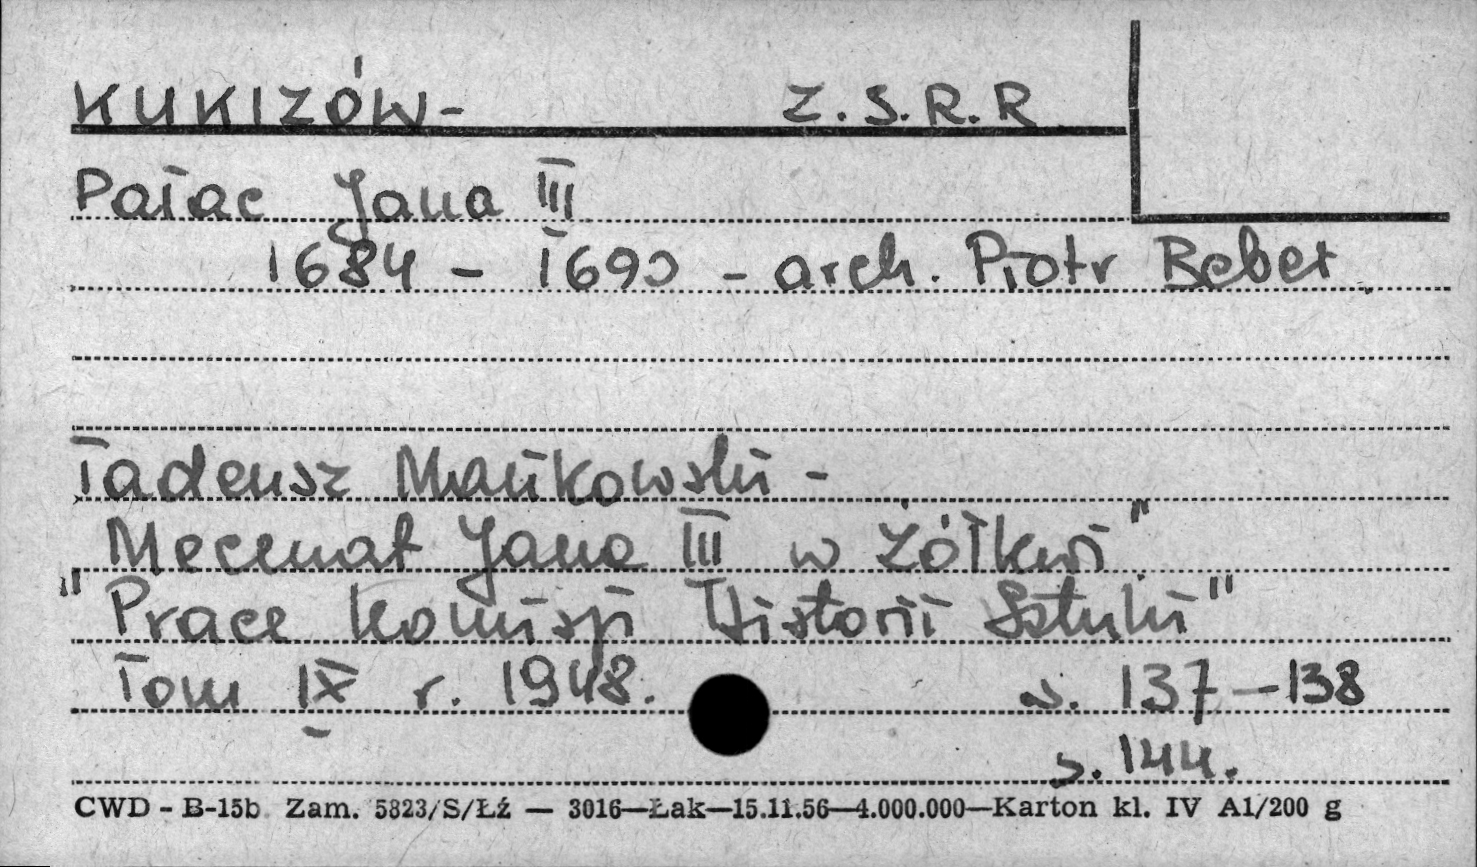 KUKIZÓW - Z.S.R.R
Pałac Jana III
1684 - 1690 - arch. Piotr Beber
Tadeusz Mańkowski -
Mecenat Jana III w Żółkwi"
"Prace Komisji Historii Sztuki"
Tom IX r. 1948. s. 137-138
s. 144.
CWD - B-15b Zam. 5823/S/Łź — 3016—Łak—15.11.56—4.000.000—Karton kl. IV A1/200 g